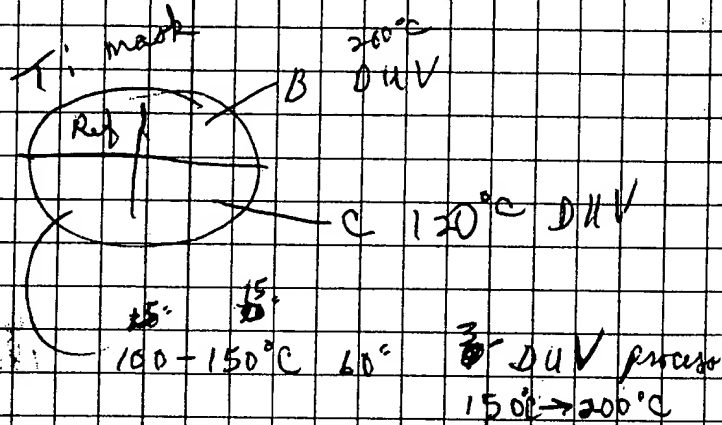 Ti mask
200°C
Ref
B DUV
C 120°C DUV
15
100-150°C 60" DUV process
150°C→200°C